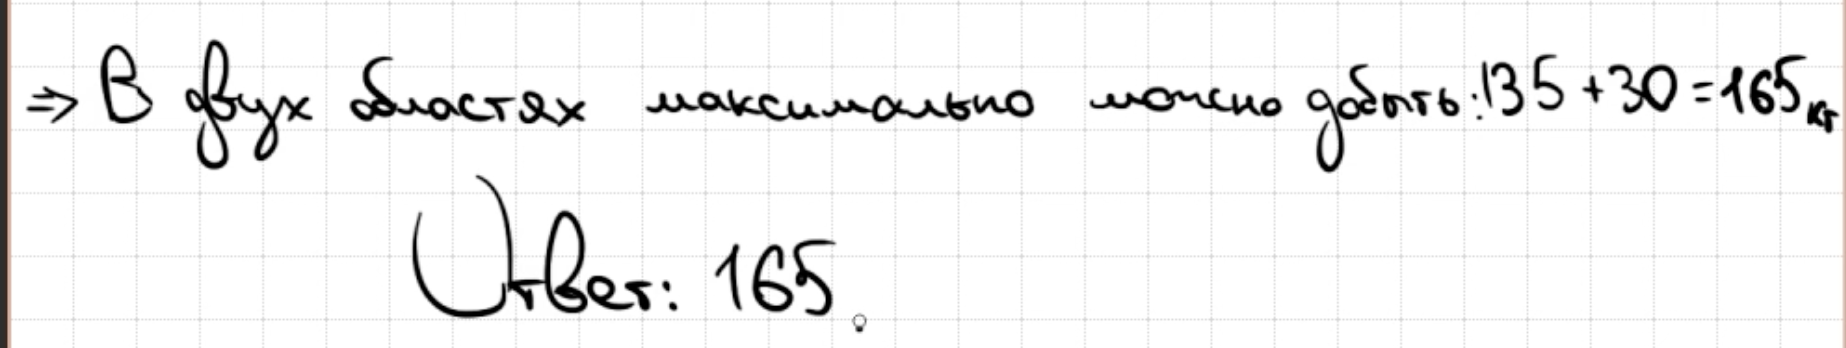 ⇒ В двух областях максимально можно добыть: 135 + 30 = 165 кг
Ответ: 165